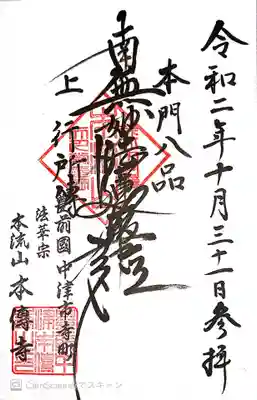 令和二年十月三十一日参拝
本門八品
南無妙法蓮華経
上行所傳
豊前國中津市寺町
法華宗
本流山 本傳寺
CamScannerでスキャン